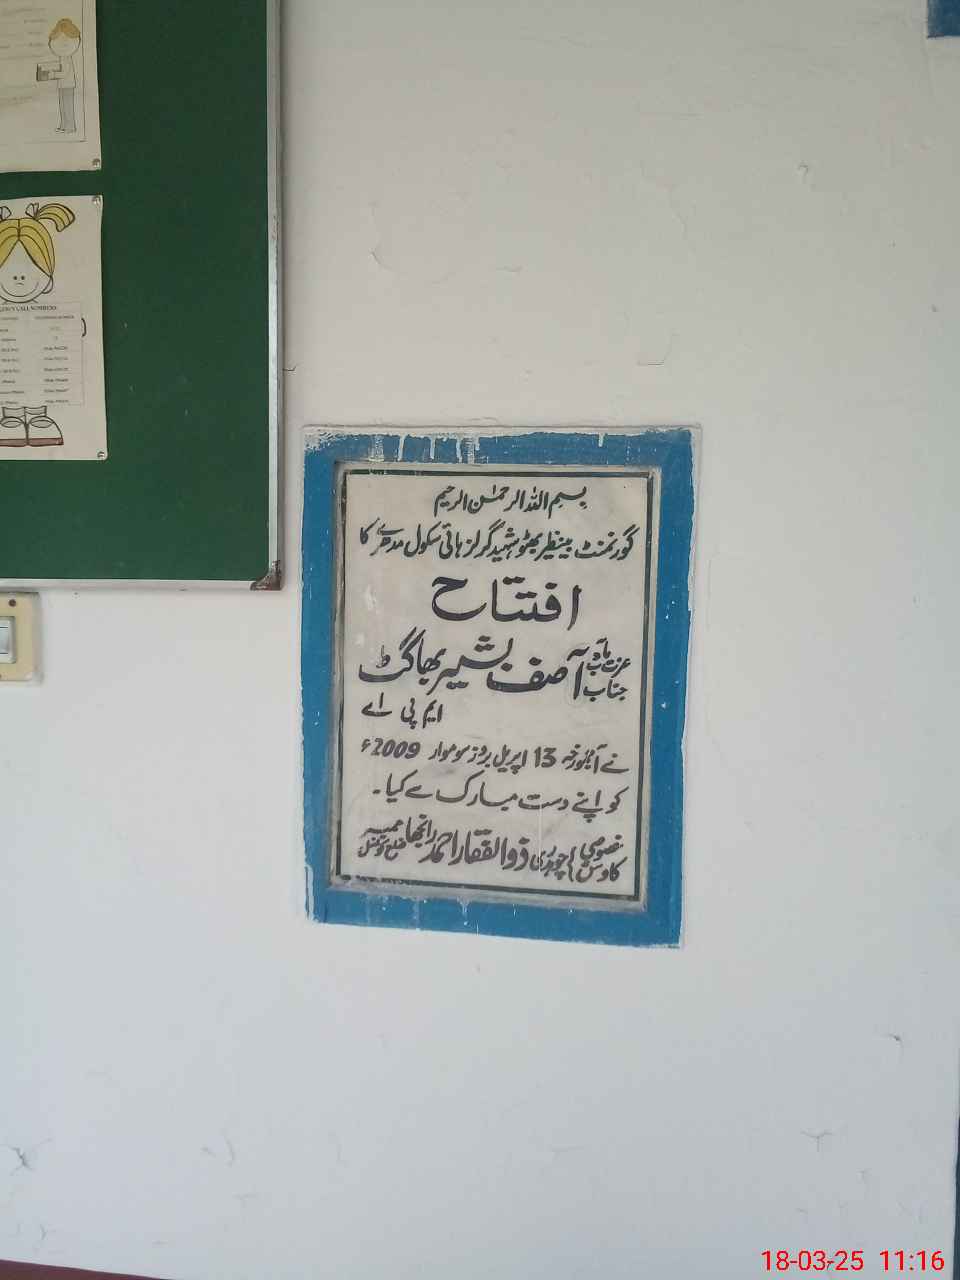 بسم اللہ الرحمٰن الرحیم
گورنمنٹ بینظیر بھٹو شہید گرلز ہائی سکول مدھرے کا
افتتاح
عزت مآب جناب آصف بشیر بھاگٹ
ایم پی اے
نے آج مورخہ 13 اپریل بروز سوموار 2009ء
کو اپنے دست مبارک سے کیا۔
خصوصی کاوش چوہدری ذوالفقار احمد رانجھا ممبر ضلع کونسل
18-03-25 11:16